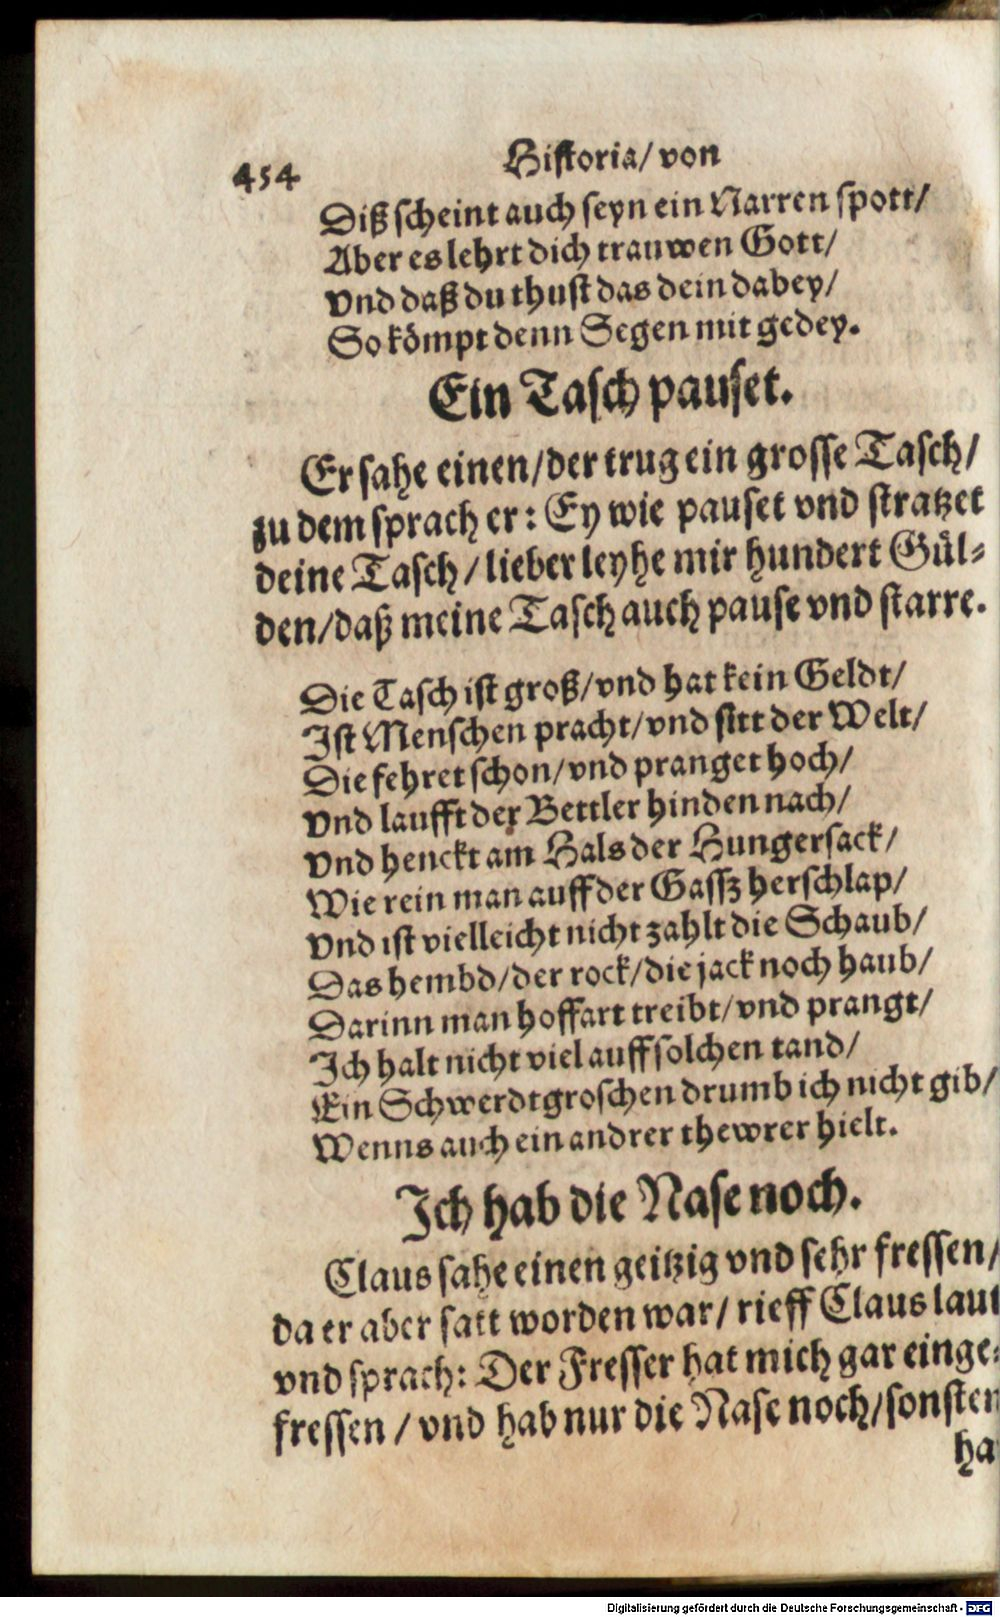 454
Historia/ von
Diß scheint auch seyn ein Narren spott/
Aber es lehrt dich trauwen Gott/
Vnd daß du thust das dein dabey/
So kömpt denn Segen mit gedey.
Ein Tasch pauset.
Er sahe einen/der trug ein grosse Tasch/
zu dem sprach er: Ey wie pauset vnd stratzet
deine Tasch/ lieber leyhe mir hundert Gül-
den/daß meine Tasch auch pause vnd starre.
Die Tasch ist groß/vnd hat kein Geldt/
Ist Menschen pracht/vnd sitt der Welt/
Die fehret schon/vnd pranget hoch/
Vnd laufft der Bettler hinden nach/
Vnd henckt am Hals der Hungersack/
Wie rein man auff der Gassz herschlap/
Vnd ist vielleicht nicht zahlt die Schaub/
Das hembd/der rock/die jack noch haub/
Darinn man hoffart treibt/vnd prangt/
Ich halt nicht viel auff solchen tand/
Ein Schwerdtgroschen drumb ich nicht gib/
Wenns auch ein andrer thewrer hielt.
Ich hab die Nase noch.
Claus sahe einen geitzig vnd sehr fressen/
da er aber satt worden war/ rieff Claus laut
vnd sprach: Der Fresser hat mich gar einge-
fressen / vnd hab nur die Nase noch/sonsten
ha
Digitalisierung gefördert durch die Deutsche Forschungsgemeinschaft - DFG